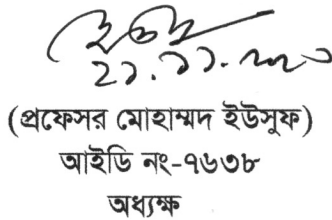 ২১.১১.২০২০
(প্রফেসর মোহাম্মদ ইউসুফ)
আইডি নং-৭৬৩৮
অধ্যক্ষ